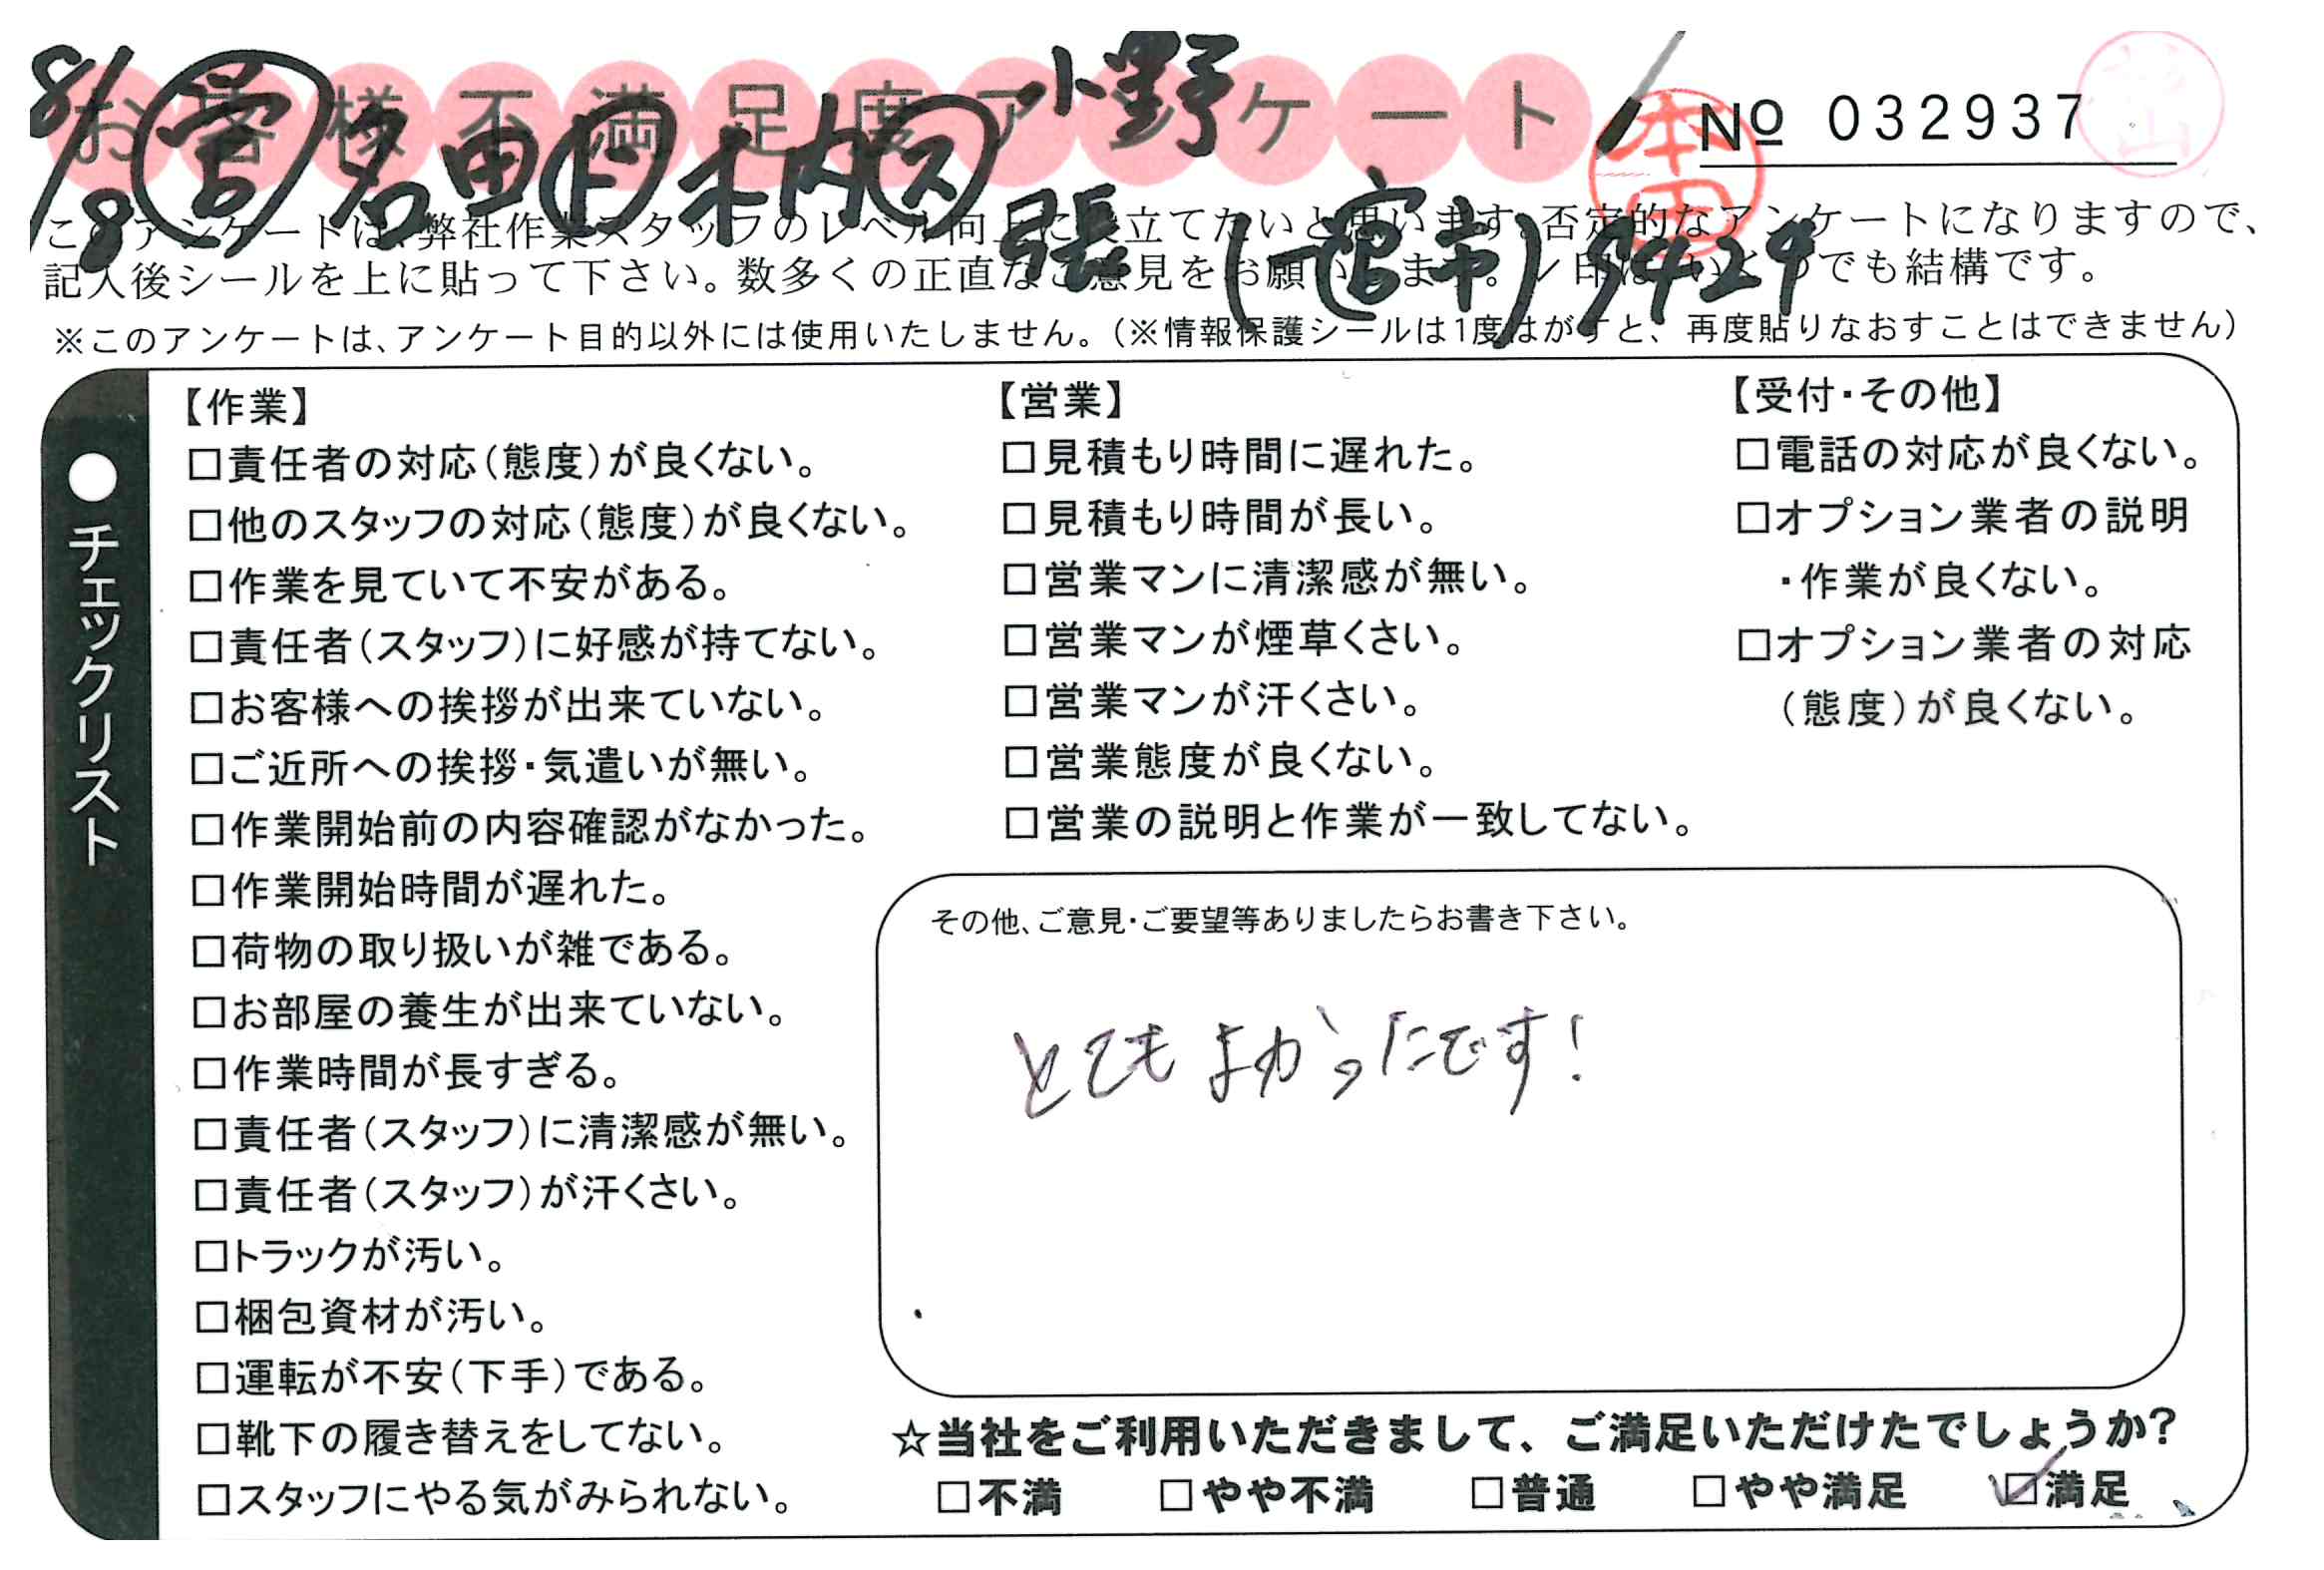 お客様不満足度アンケート
№ 032937
8/8 営 名田 ド 木内 ス 小野
張 (一宮市) 9429
本田
このアンケートは、弊社作業スタッフのレベル向上に役立てたいと思います。否定的なアンケートになりますので、
記入後シールを上に貼って下さい。数多くの正直なご意見をお願いします。✓印はいくつでも結構です。
※このアンケートは、アンケート目的以外には使用いたしません。(※情報保護シールは1度はがすと、再度貼りなおすことはできません)
●チェックリスト
【作業】
□責任者の対応(態度)が良くない。
□他のスタッフの対応(態度)が良くない。
□作業を見ていて不安がある。
□責任者(スタッフ)に好感が持てない。
□お客様への挨拶が出来ていない。
□ご近所への挨拶・気遣いが無い。
□作業開始前の内容確認がなかった。
□作業開始時間が遅れた。
□荷物の取り扱いが雑である。
□お部屋の養生が出来ていない。
□作業時間が長すぎる。
□責任者(スタッフ)に清潔感が無い。
□責任者(スタッフ)が汗くさい。
□トラックが汚い。
□梱包資材が汚い。
□運転が不安(下手)である。
□靴下の履き替えをしてない。
□スタッフにやる気がみられない。
【営業】
□見積もり時間に遅れた。
□見積もり時間が長い。
□営業マンに清潔感が無い。
□営業マンが煙草くさい。
□営業マンが汗くさい。
□営業態度が良くない。
□営業の説明と作業が一致してない。
【受付・その他】
□電話の対応が良くない。
□オプション業者の説明
・作業が良くない。
□オプション業者の対応
(態度)が良くない。
その他、ご意見・ご要望等ありましたらお書き下さい。
とてもよかったです!
☆当社をご利用いただきまして、ご満足いただけたでしょうか?
□不満 □やや不満 □普通 □やや満足 ☑満足